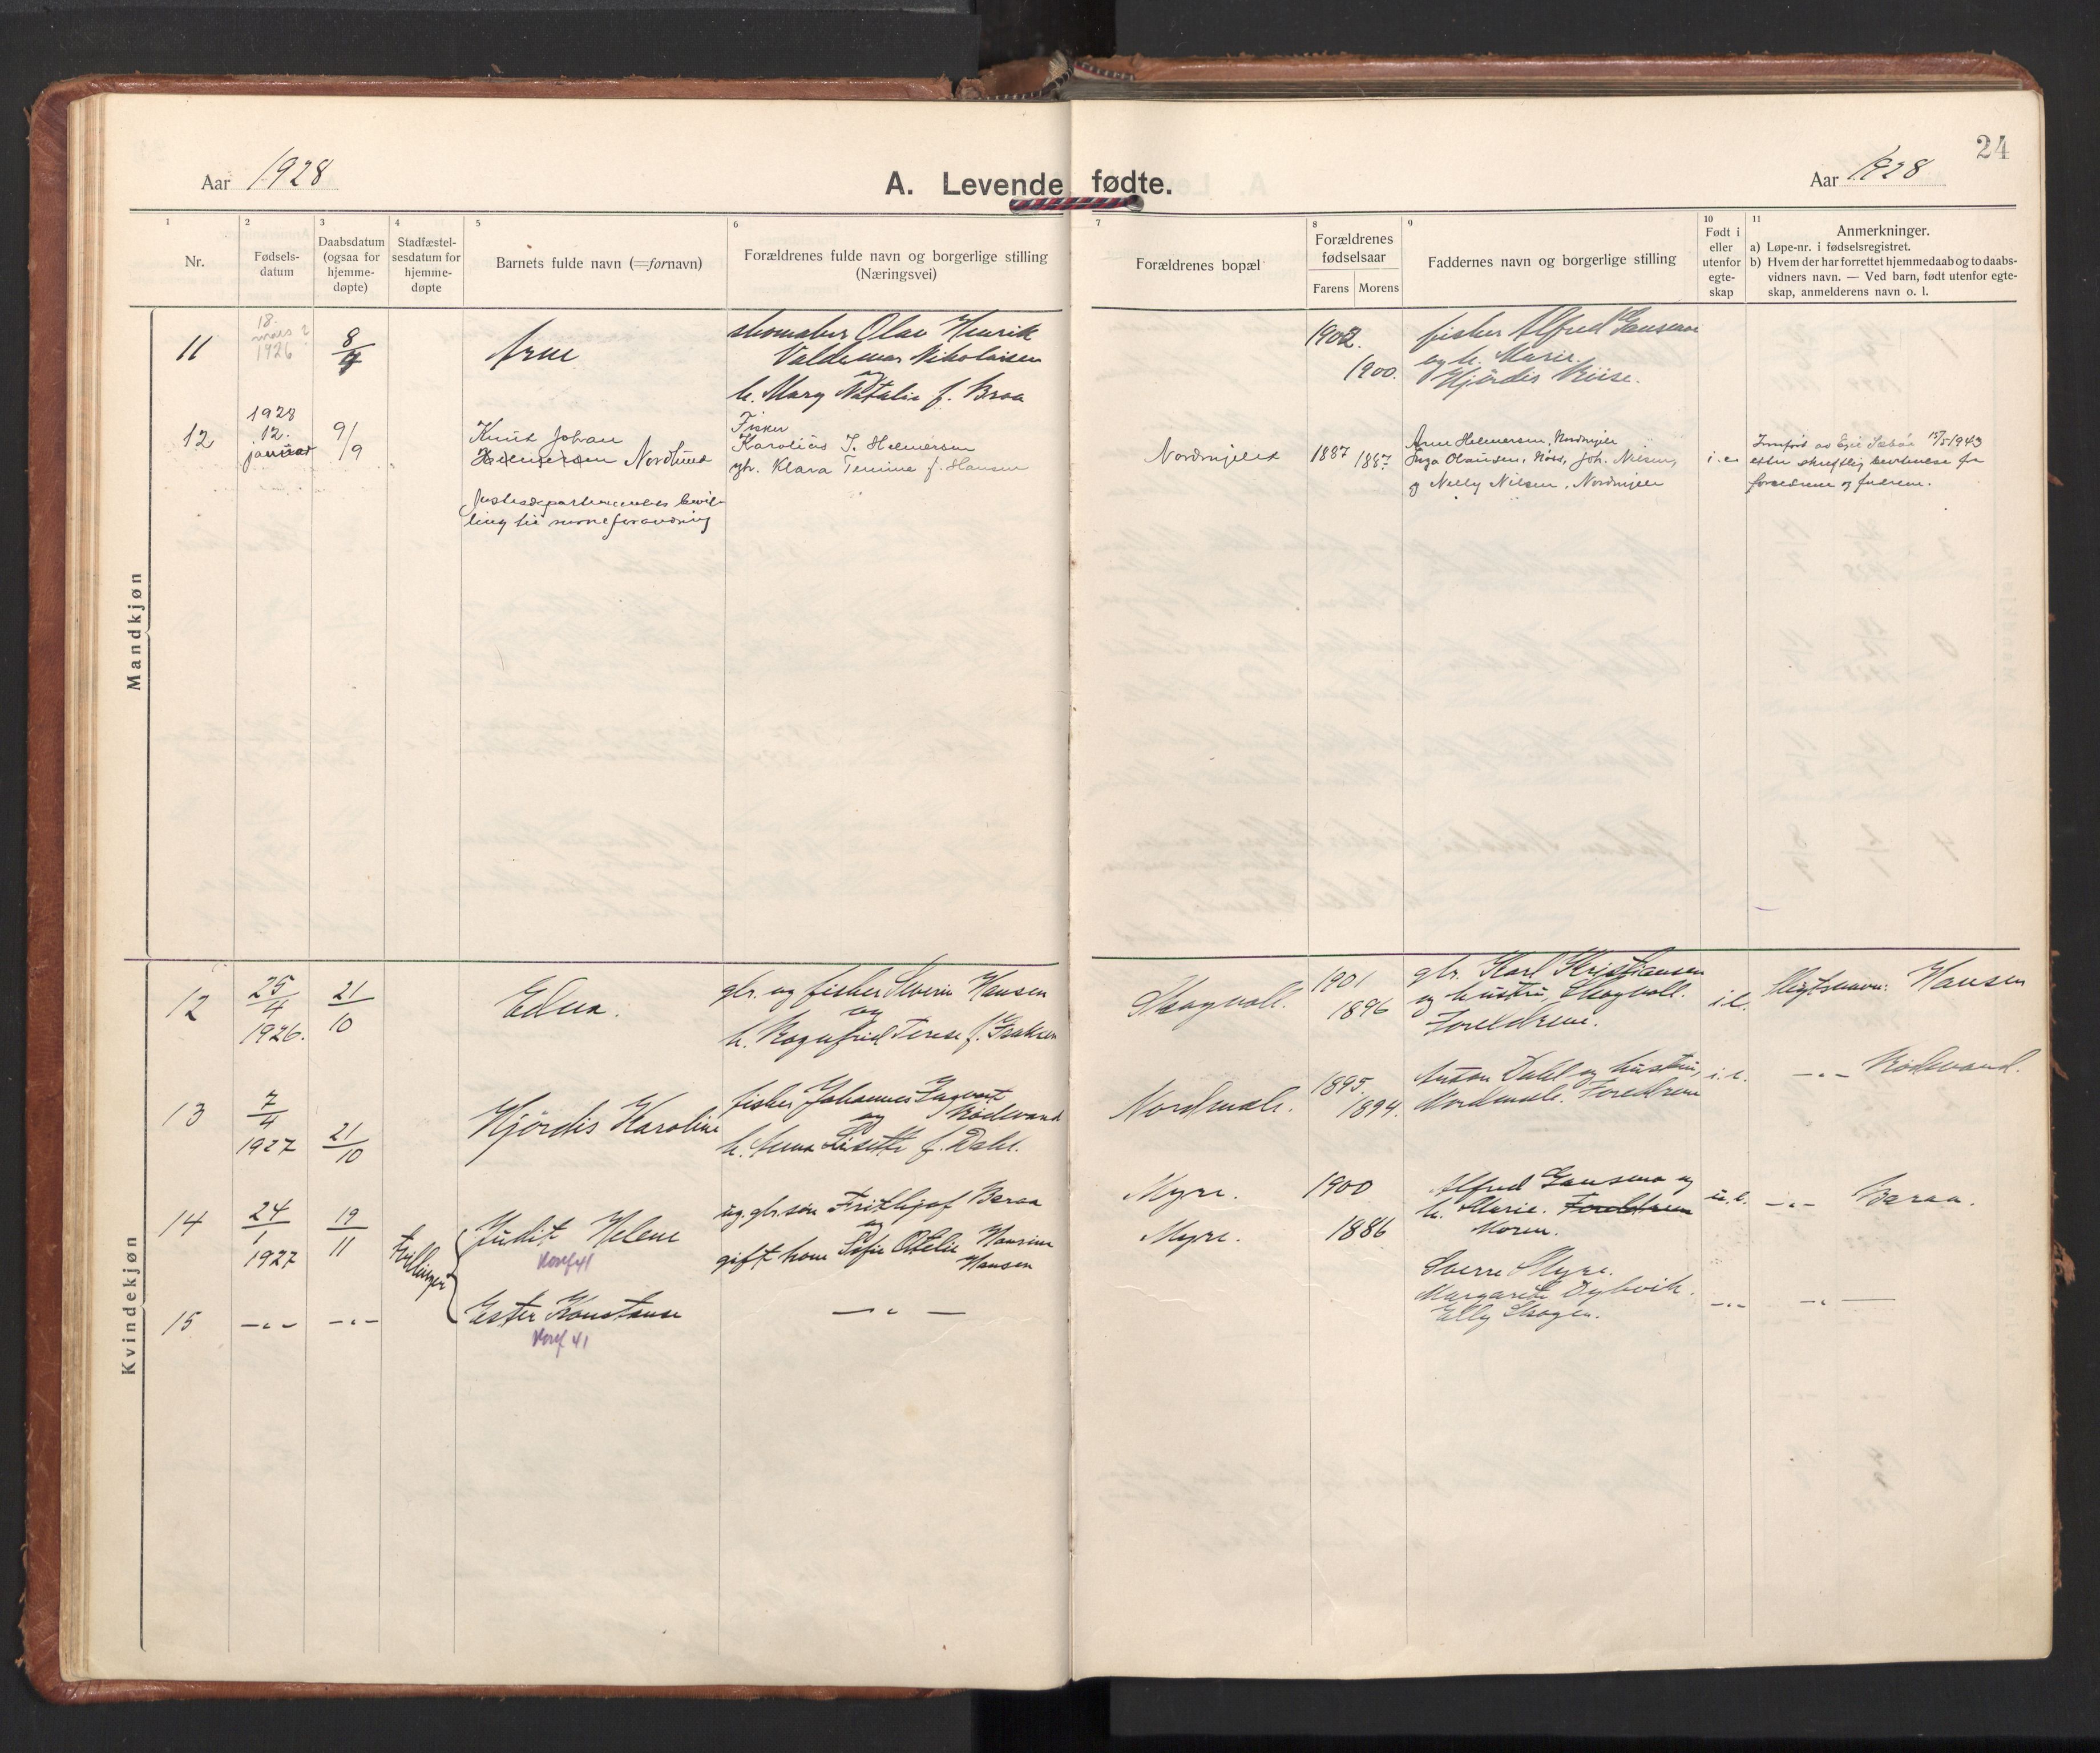 24
Aar 1928
A. Levende fødte.
Aar 1928
1 2 3 4 5 6 7 8 9 10 11
Nr.
Fødsels-
datum
Daabsdatum
(ogsaa for
hjemme-
døpte)
Stadfæstel-
sesdatum for
hjemme-
døpte
Barnets fulde navn (=fornavn)
Forældrenes fulde navn og borgerlige stilling
(Næringsvei)
Forældrenes bopæl
Forældrenes
fødselsaar
Farens Morens
Faddernes navn og borgerlige stilling
Født i
eller
utenfor
egte-
skap
Anmerkninger.
a) Løpe-nr. i fødselsregistret.
b) Hvem der har forrettet hjemmedaab og to daabs-
vidners navn. — Ved barn, født utenfor egte-
skap, anmelderens navn o. l.
Mandkjøn
11
18.
mars ?
1926
8/7
Arne
skomaker Olav Henrik
Valdemar Nikolaisen
og
h. Mary Natalie f. Braa
1902.
1900.
fisker Alfred
og h. Marie.
Hjördis Riise.
12
1928
12.
januar
9/9
Knut Johan
Helmersen Nordlund
Justisdepartementets bevil-
ling til navneforandring
Fisker
Karolius J. Helmersen
og h. Klara Temine f. Hansen
Nordmjele
1887 1887
Arne Helmersen, Nordmjele
Inga Olausen, Nöss, Joh. Nilsen,
og Nelly Nilsen, Nordmjele
i. e.
Innförd av 15/5 1943
etter skriftlig bevitnelse fra
foreldrene og fadrene.
Kvindekjøn
12
25/4
1926.
21/10
Edna.
gbr. og fisker Severin Hansen
og
h. Ragnfrid Terese f. Isaksen
Skogvoll.
1901
1896
gbr. Karl Kristiansen
og hustru, Skogvoll.
Foreldrene.
i. e.
Slegtsnavn: Hansen
13
7/4
1927
21/10
Hjördis Karoline
fisker Johannes Ingvart
og Rödsand
h. Anna Lisette f. Dahl.
Nordmele.
1895.
1894.
Anton Dahl og hustru,
Nordmele. Foreldrene
i. e.
—„— Rödsand.
14
24/1
1927
19/11
Tvillinger
Judit Helene
Konf 41
ug. gbr.søn Frithjof Beraa
og
gift kone Sofie Otelie Hansine
Hansen
Myre.
Myre.
1900
1886
Alfred og
h. Marie. Foreldrene
Moren.
u. e.
—„— Beraa.
15
—„— —„—
Ester Konstanse
Konf 41
—„—
Sverre Myre.
Margarite Dybvik.
Elly Skogen.
—„—
—„—